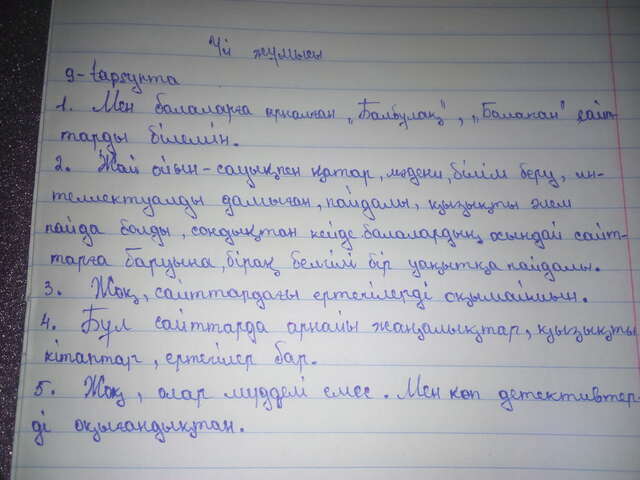 Үй жұмысы
9-tapsүнта
1. Мен балаларға арналған „Балбұлақ", „Балапан" сайт-
тарды білемін.
2. Жай ойын-сауықпен қатар, мәдени, білім беру, ин-
теллектуалды дамыған, пайдалы, қызықты әлем
пайда болды, сондықтан кейде балалардың осындай сайт-
тарға баруына, бірақ белгілі бір уақытқа пайдалы.
3. Жоқ, сайттардағы ертегілерді оқымаймын.
4. Бұл сайттарда арнайы жаңалықтар, қызықты
кітаптар, ертегілер бар.
5. Жоқ, олар мүдделі емес. Мен көп детективтер-
ді оқығандықтан.